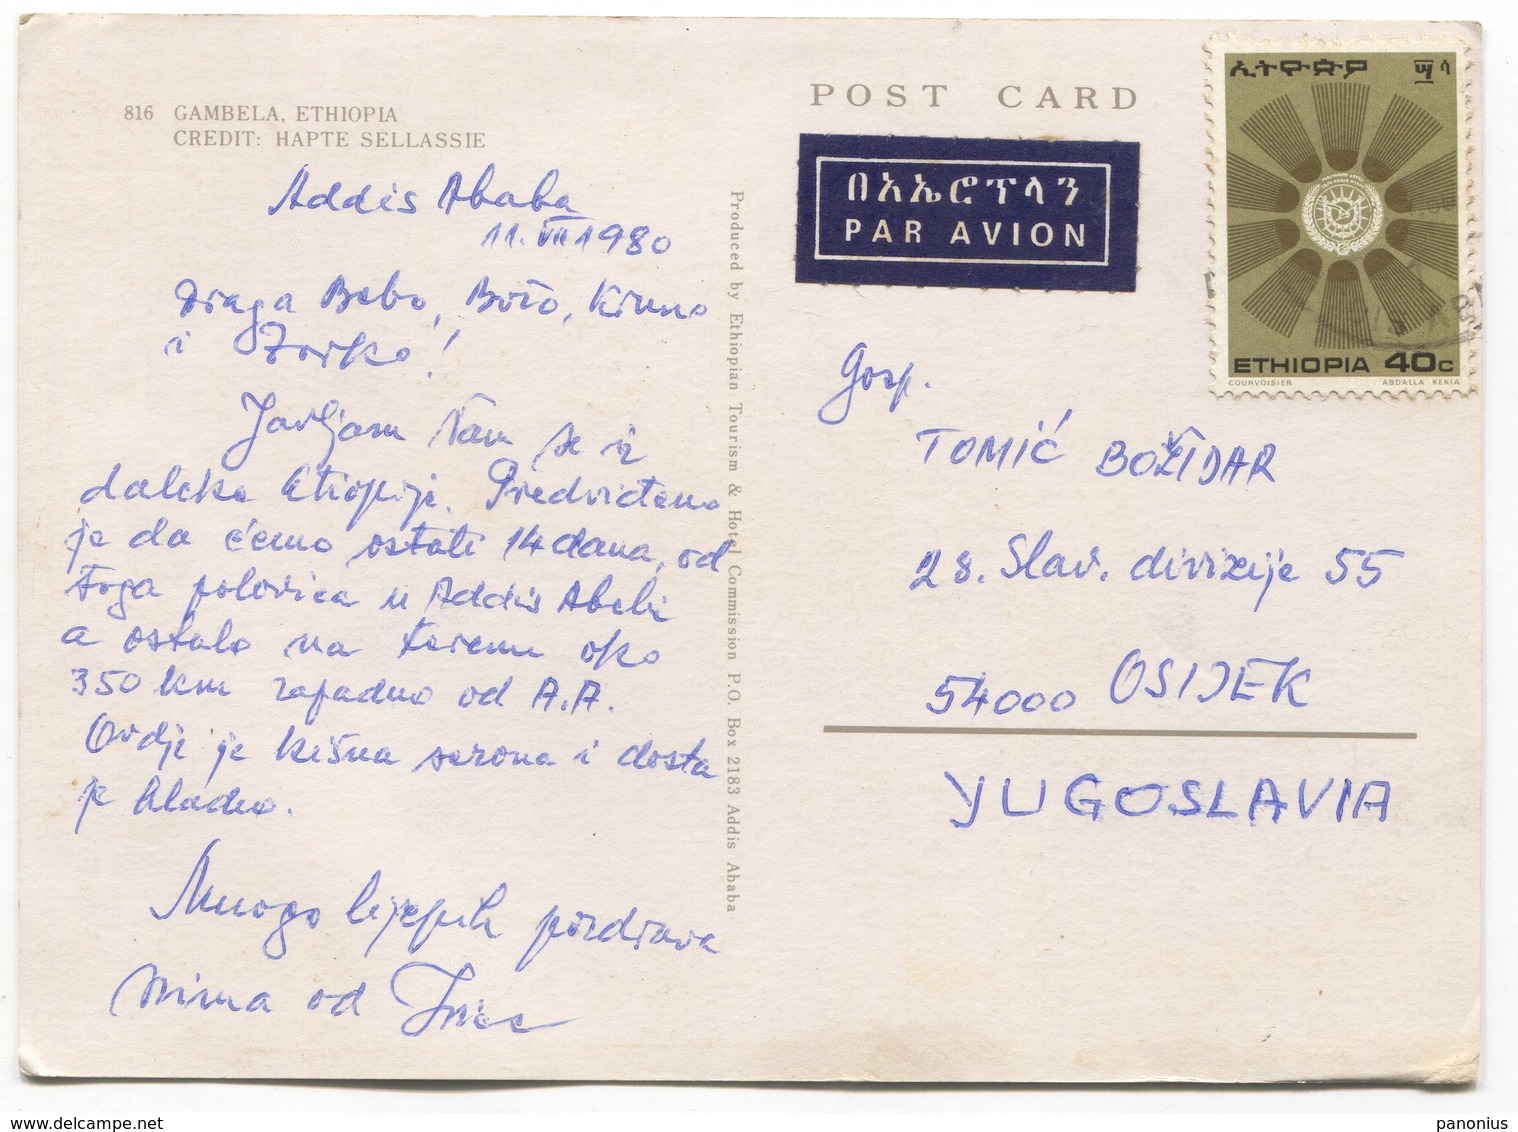 816 GAMBELA, ETHIOPIA
CREDIT: HAPTE SELLASSIE
Addis Ababa
11. VII 1980
Draga Bebo, Božo, Kruno
i Zorko!
Javljam Vam se iz
daleke Etiopije. Predviđeno
je da ćemo ostati 14 dana, od
toga polovica u Addis Abebi
a ostalo na terenu oko
350 km zapadno od A.A.
Ovdje je kišna sezona i dosta
je hladno.
Mnogo lijepih pozdrava
svima od
Produced by Ethiopian Tourism & Hotel Commission P.O. Box 2183 Addis Ababa
POST CARD
በአኤሮፕላን
PAR AVION
ኢትዮጵያ
ETHIOPIA 40c
COURVOISIER ABDALLA KEKIA
Gosp.
TOMIĆ BOŽIDAR
28. Slav. divizije 55
54000 OSIJEK
YUGOSLAVIA
delcampe.net
panonius